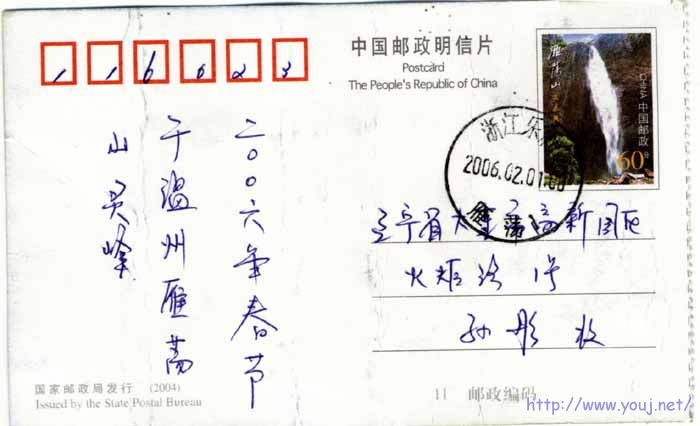 116023
中国邮政明信片
Postcard
The People's Republic of China
雁荡山
中国邮政
CHINA
60分
浙江乐
2006.02.01
雁荡
二〇〇六年春节
于温州雁荡
山灵峰
辽宁省大连市高新园区
火炬路 号
孙彤 收
国家邮政局发行 (2004)
Issued by the State Postal Bureau
11 邮政编码
http://www.youj.net/